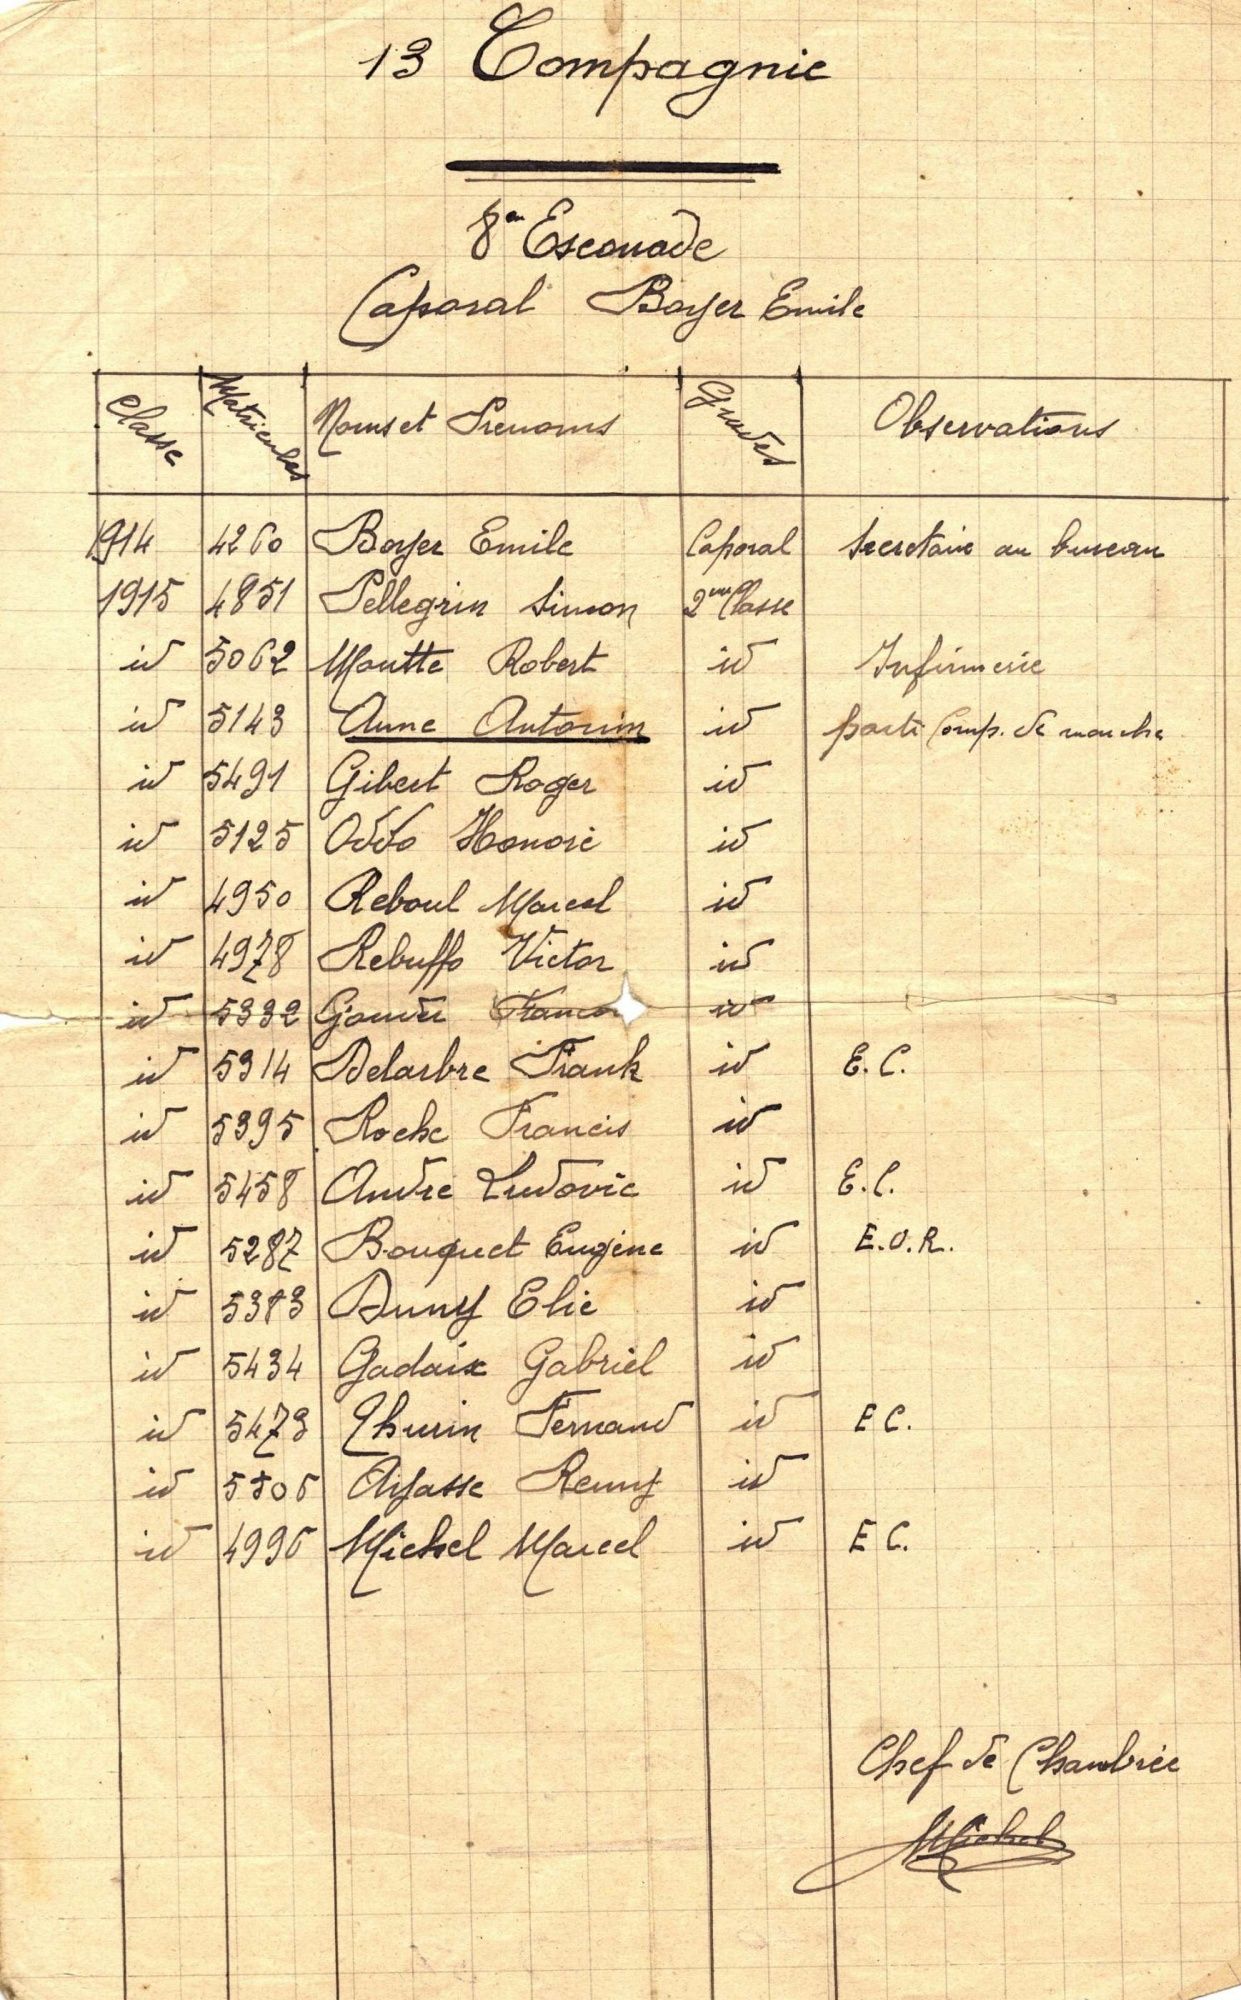 13 Compagnie
8em Escouade
Caporal Boyer Emile
Classe Matricules Noms et Prenoms Grades Observations
1914 4260 Boyer Emile Caporal Secretaire au bureau
1915 4851 Pellegrin Simon 2eme Classe
id 5062 Moutte Robert id Infirmerie
id 5143 Aune Antonin id parti Comp. de marche
id 5491 Gibert Roger id
id 5125 Oddo Honoré id
id 4950 Reboul Marcel id
id 4978 Rebuffo Victor id
id 5332 id
id 5314 Delarbre Frank id E.C.
id 5395 Roche Francis id
id 5458 Andre Ludovic id E.C.
id 5287 Bouquet Eugène id E.O.R.
id 5383 Duny Elie id
id 5434 Gadaix Gabriel id
id 5473 Thurin Fernand id E C.
id Ayasse Remy id
id 4996 Michel Marcel id E C.
Chef de Chambrée
Michel